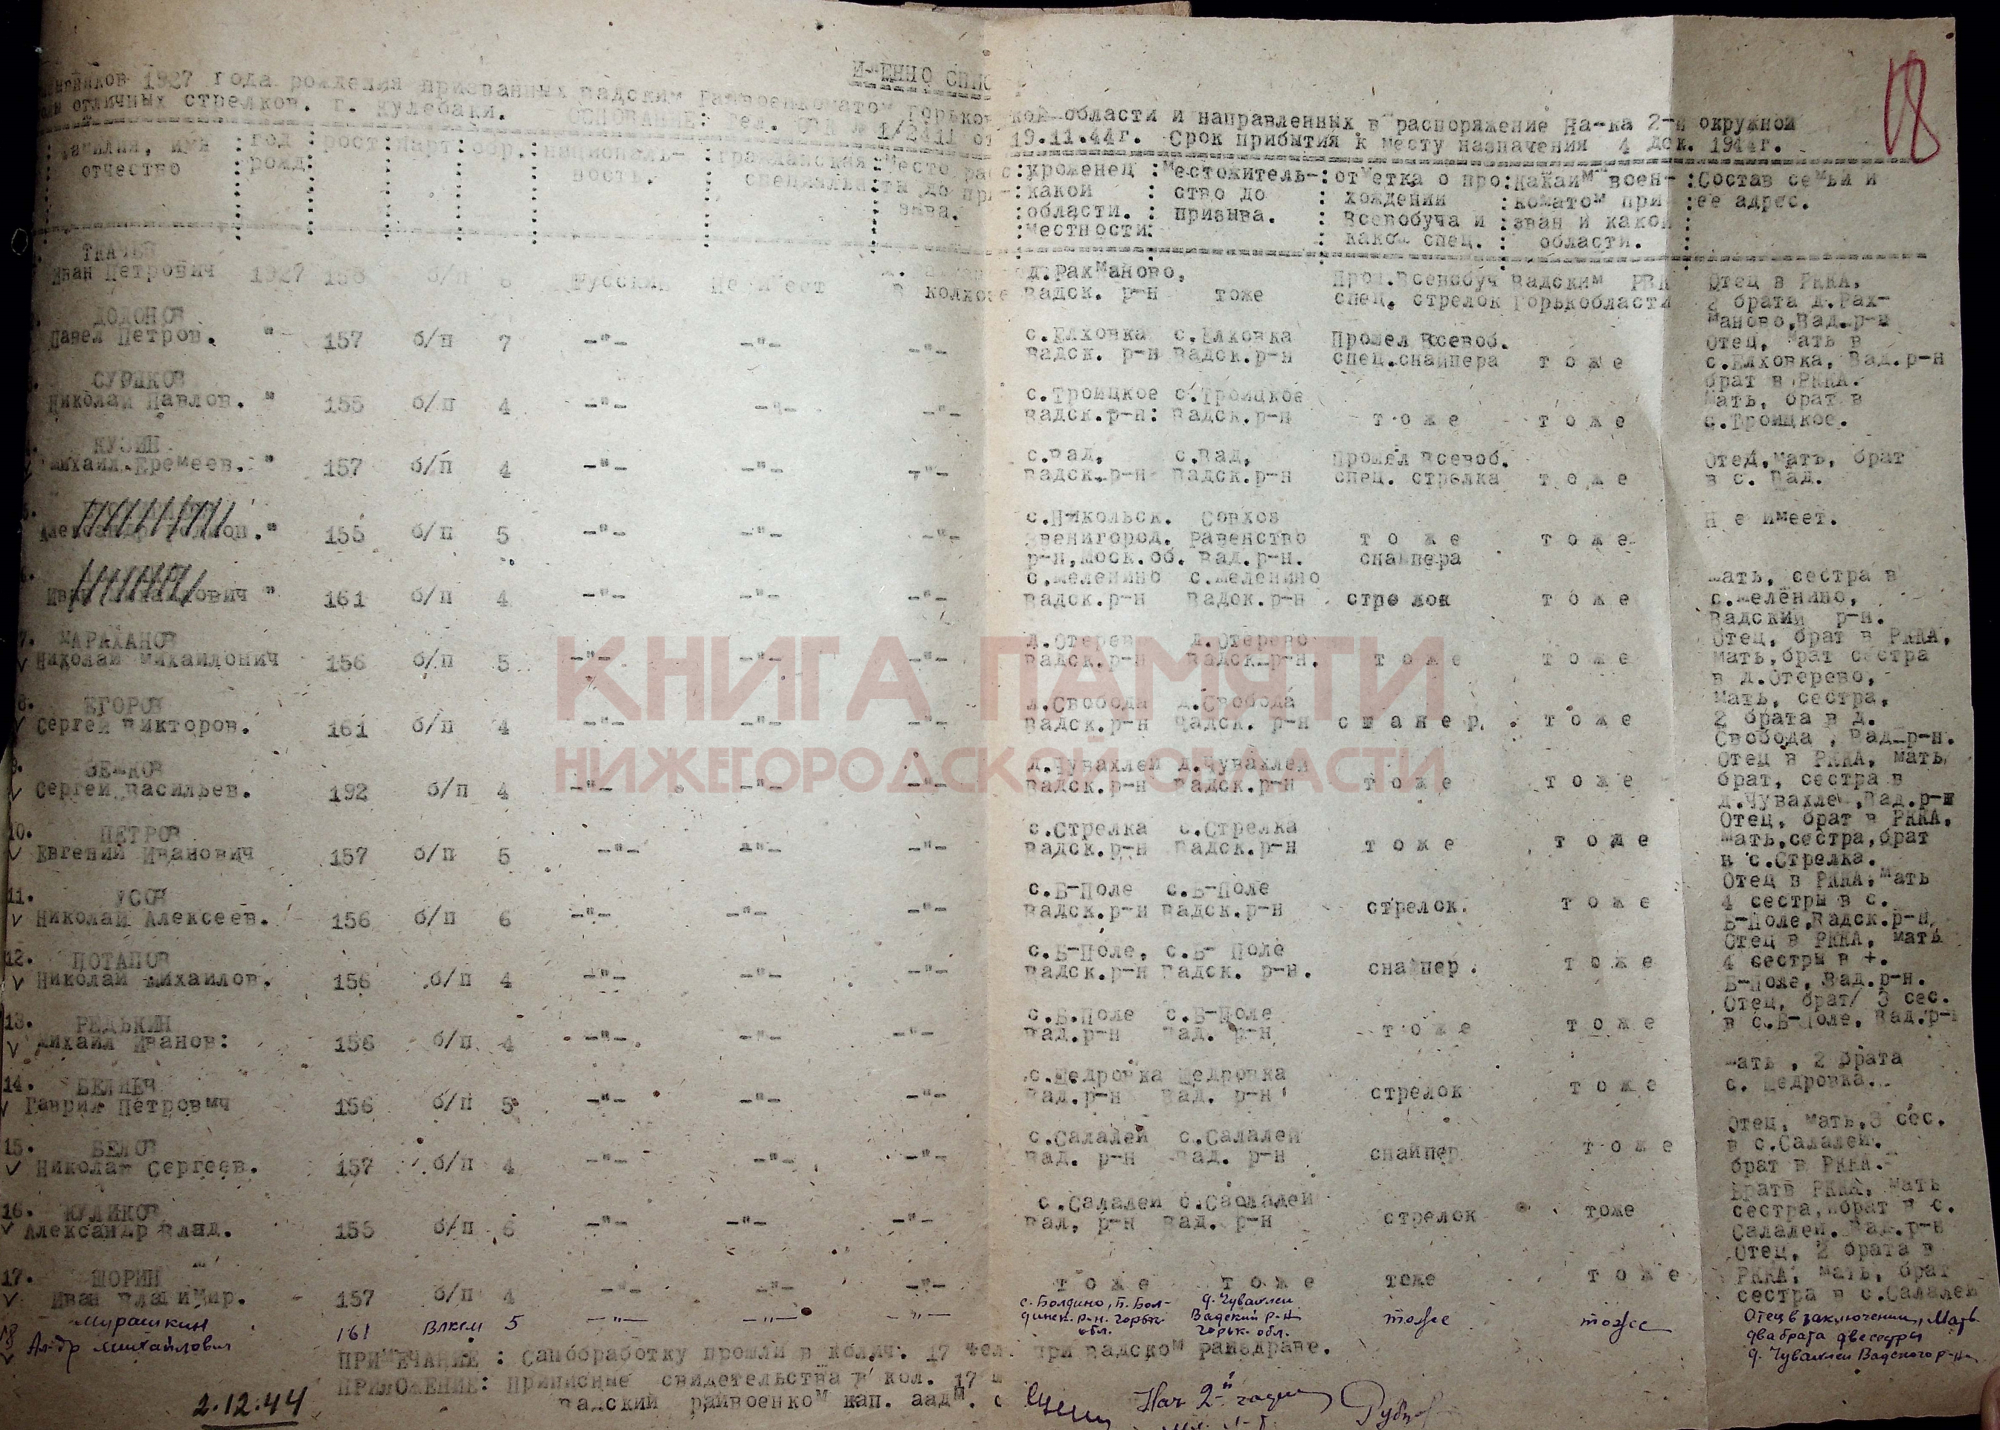 18
ИМЕННО СПИС
1927 года рождения призванных Вадским Райвоенкоматом Горьков кой области и направленных в распоряжение На-ка 2-й окружной
отличных стрелков. г. Кулебаки. ОСНОВАНИЕ: 1/2411 от 19.11.44г. Срок прибытия к месту назначения 4 дек. 1944г.
Фамилия, имя отчество : год рожд. : рост : парт. : обр. : националь- ность. : гражданская специальн. : место раб та до при зыва. : уроженец какой области. местности : местожитель- ство до призыва. : отметка о про хождении Всевобуча и какой спец. : каким воен- коматом при зван и какой области. : Состав семьи и ее адрес.
ТКАЧЕВ
Иван Петрович 1927 158 б/п 6 Русский Не имеет в колхозе д.Рахманово, Вадск. р-н тоже Прош.Всевобуч спец. стрелок Вадским РВК Горькобласти Отец в РККА, 2 брата д.Рах- маново,Вад.р-н
ДОДОНОВ
Павел Петров. " 157 б/п 7 -"- -"- -"- с.Елховка Вадск. р-н с.Елховка Вадск.р-н Прошел Всевоб. спец.снайпера тоже Отец, мать в с.Елховка, Вад.р-н брат в РККА.
СУРИКОВ
Николай Павлов. " 155 б/п 4 -"- -"- -"- с.Троицкое Вадск.р-н: с.Троицкое Вадск.р-н тоже тоже Мать, брат в с.Троицкое.
КУЗИН
Михаил.Еремеев. " 157 б/п 4 -"- -"- -"- с.Вад, Вадск.р-н с.Вад, Вадск.р-н Прошел Всевоб. спец. стрелка тоже Отец,мать, брат в с. Вад.
Александр " 155 б/п 5 -"- -"- -"- с.Никольск. Звенигород. р-н,Моск.об. Совхоз Равенство Вад.р-н. тоже снайпера тоже Не имеет.
Иван Михайлович " 161 б/п 4 -"- -"- -"- с.Меленино Вадск.р-н с.Меленино Вадск.р-н стрелок тоже Мать, сестра в с.Меленино, Вадский р-н.
7. МАРАХАНОВ
Николай Михайлович 156 б/п 5 -"- -"- -"- д.Отерев Вадск.р-н д.Отерево Вадск.р-н. тоже тоже Отец, брат в РККА, мать,брат сестра в д.Отерево,
8. ЕГОРОВ
Сергей Викторов. 161 б/п 4 -"- -"- -"- д.Свобода Вадск.р-н д.Свобода Вадск. р-н тоже Мать, сестра, 2 брата в д. Свобода , Вад.р-н.
9.
Сергей Васильев. 192 б/п 4 -"- -"- -"- д.Чувахлей Вадск.р-н д.Чувахлей Вадск.р-н тоже тоже Отец в РККА, мать брат, сестра в д.Чувахле ,Вад.р-н
10. ПЕТРОВ
Евгений Иванович 157 б/п 5 -"- -"- -"- с.Стрелка Вадск.р-н с.Стрелка Вадск.р-н тоже тоже Отец, брат в РККА, мать,сестра,брат в с.Стрелка.
11. УСОВ
Николай Алексеев. 156 б/п 6 -"- -"- -"- с.Б-Поле Вадск.р-н с.Б-Поле Вадск.р-н стрелок. тоже Отец в РККА,мать 4 сестры в с. Б-Поле,Вадск.р-н,
12. ПОТАПОВ
Николай Михайлов. 156 б/п 4 -"- -"- -"- с.Б-Поле, Вадск.р-н с.Б- Поле Вадск. р-н. снайпер. тоже Отец в РККА, мать 4 сестры в +. Б-Поле, Вад.р-н.
13. РЕДЬКИН
Михаил Иванов: 156 б/п 4 -"- -"- -"- с.Б.Поле Вад.р-н с.Б-Поле ад. р-н тоже тоже Отец, брат/ 3 сес. в с.Б-Поле, Вад.р-н
14. БЕЛИЕЧ
Гаврил Петрович 156 б/п 5 -"- -"- -"- .с.Щедровка Вад.р-н Щедровка Вад. р-н стрелок тоже Мать , 2 брата с. Щедровка.
15. БЕЛОВ
Николай Сергеев. 157 б/п 4 -"- -"- -"- с.Салалей Вад. р-н с.Салалей Вад. р-н снайпер тоже Отец, мать,3 сес. в с.Салалей. брат в РККА.
16. КУЛИКОВ
Александр Влад. 155 б/п 6 -"- -"- -"- с.Салалей Вад, р-н с.Саолалей Вад. р-н стрелок тоже Братв РККА, мать сестра,брат в с. Салалей. Вад.р-н
17. ШОРИН
Иван Владимир. 157 б/п 4 -"- -"- -"- тоже тоже тоже тоже Отец, 2 брата в РККА, мать, брат сестра в с.Салалей
18 Мурашкин
Ал-др Михайлович 161 Влксм 5 -"- -"- -"- с. Болдино, Б. Бол- динск. р-н. Горьк. обл. д. Чувахлеи Вадский р-н Горьк. обл. тоже тоже Отец в заключении, Мать два брата две сестры д. Чувахлеи Вадского р-на
ПРИМЕЧАНИЕ : Санобработку прошли в колич. 17 чел. при Вадском райздраве.
ПРИЛОЖЕНИЕ: Приписные свидетельства в кол. 17 ш
Вадский райвоенком кап. адм. с
Нач 2-й части
2.12.44
КНИГА ПАМЯТИ
НИЖЕГОРОДСКОЙ ОБЛАСТИ